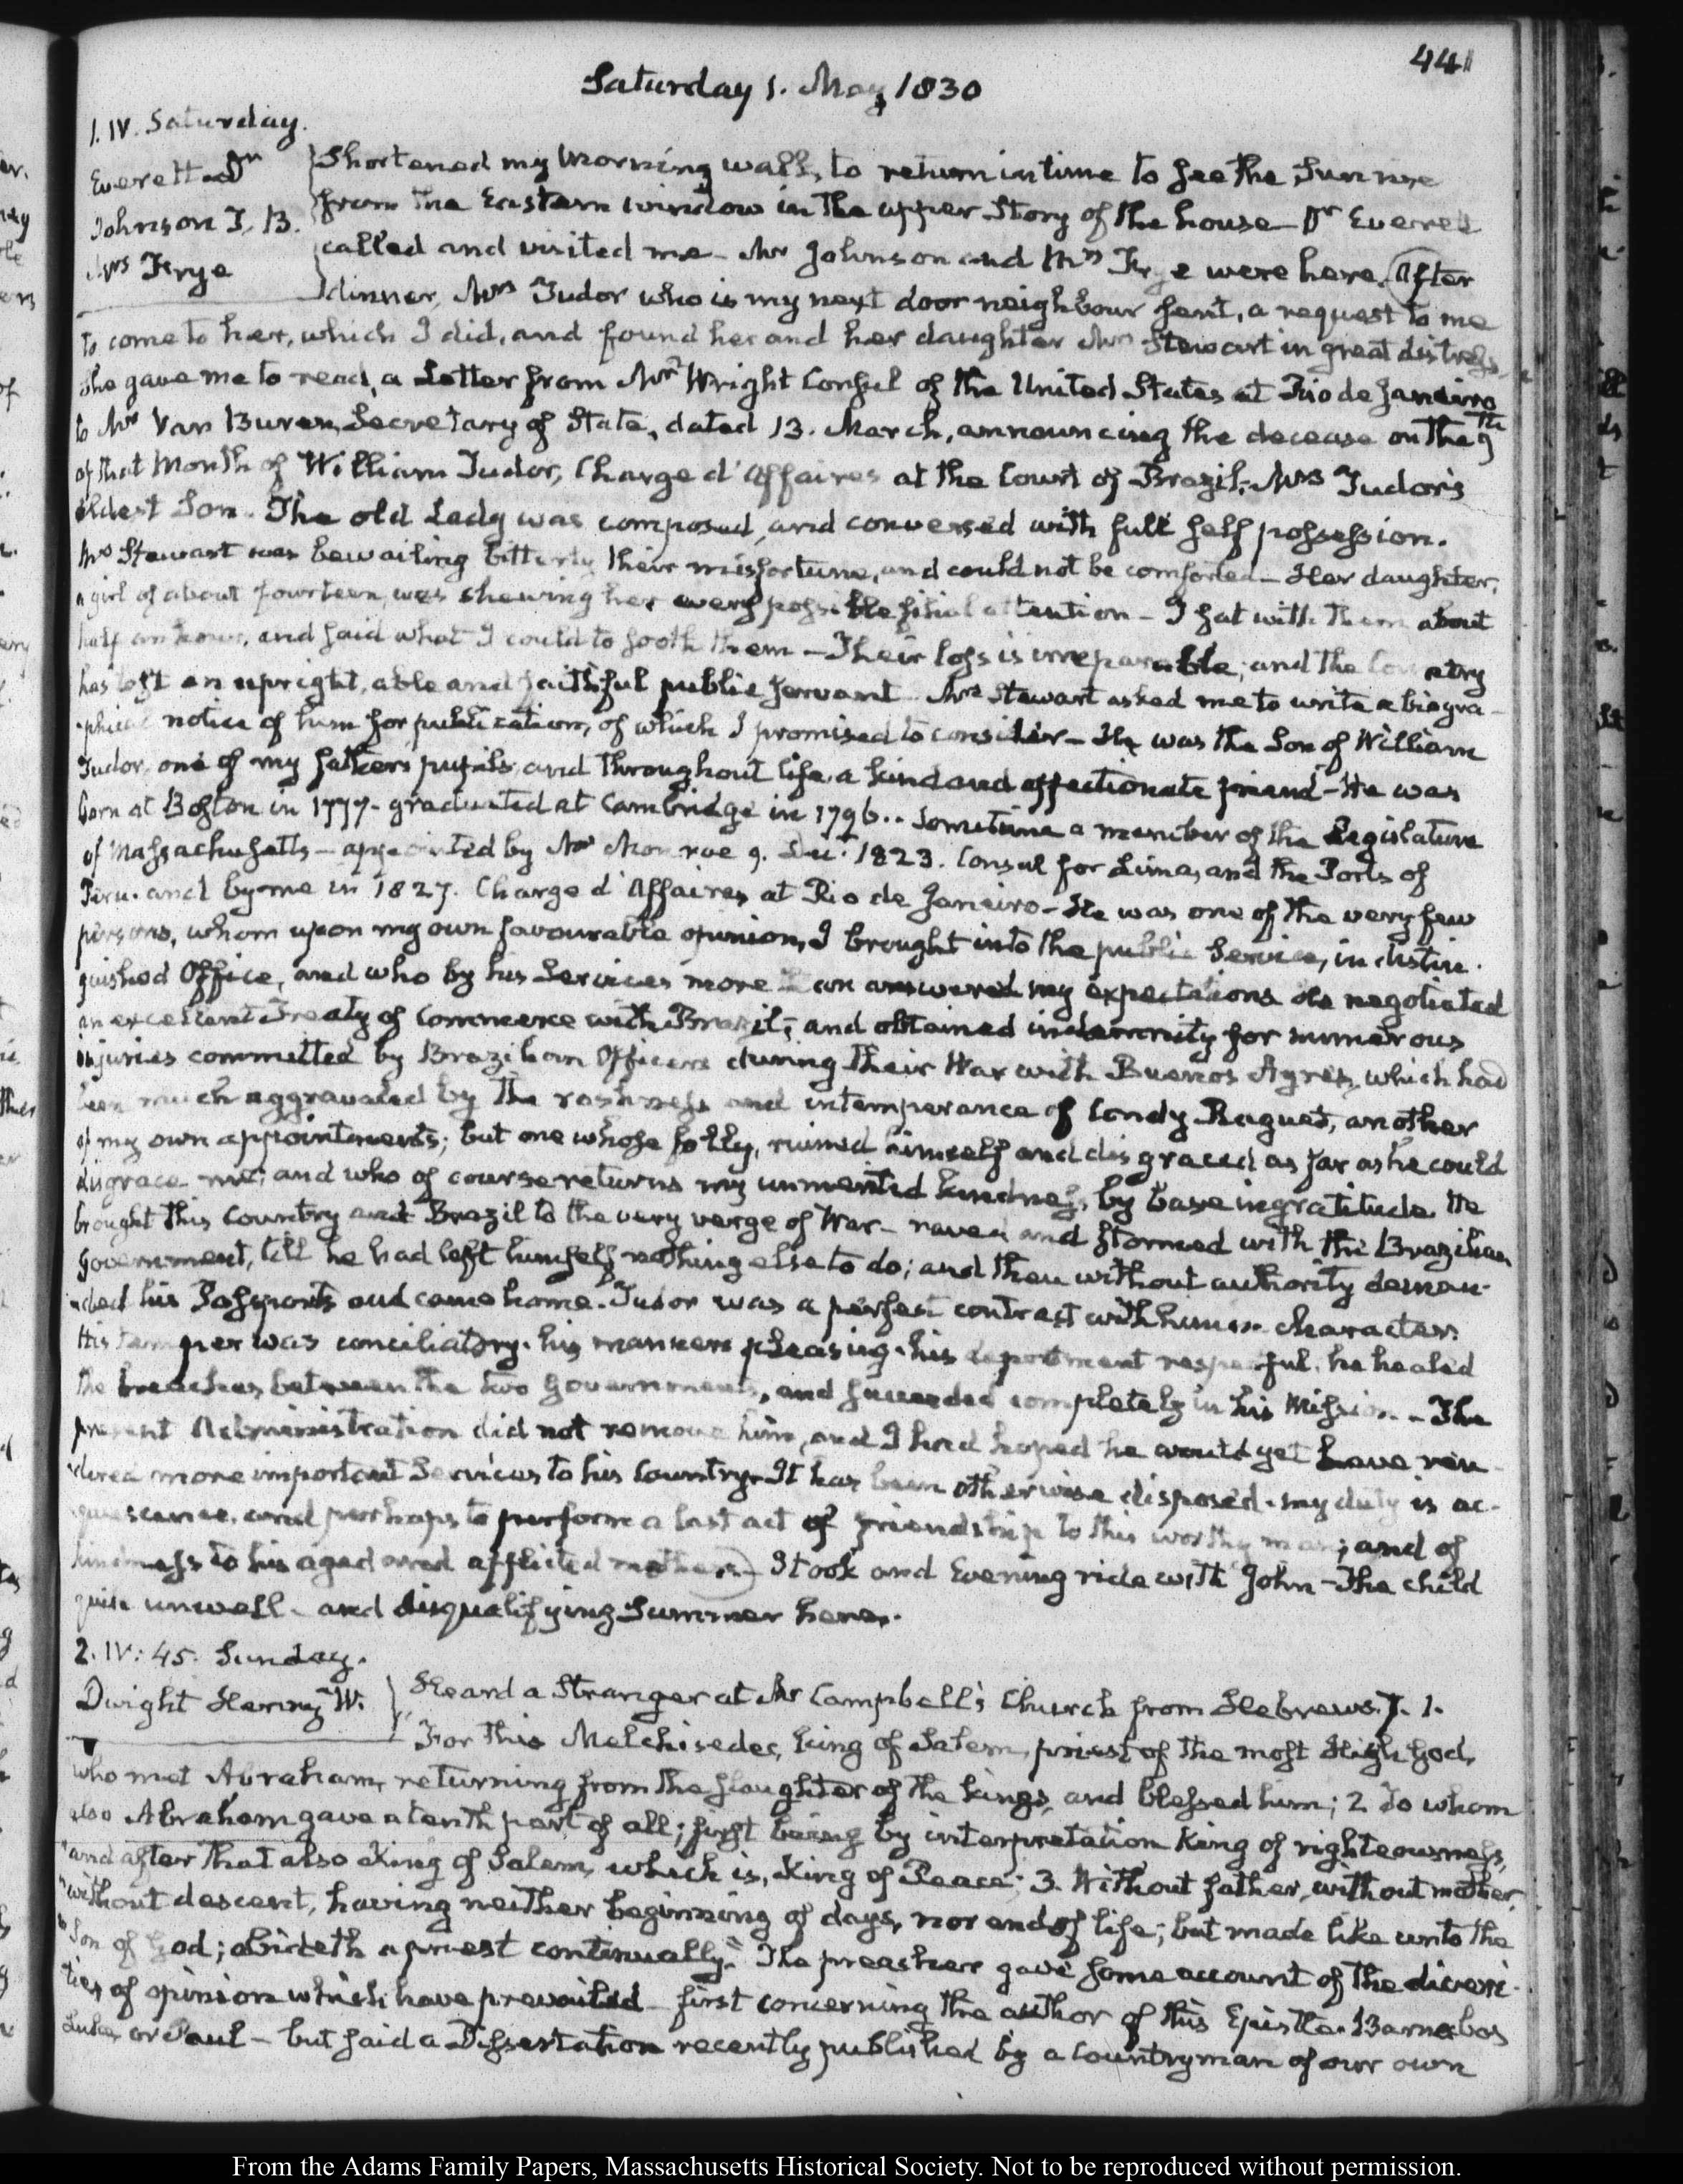 441
Saturday 1. May 1830
1. IV. Saturday.
Everett Dr
Johnson T. B.
Mrs Frye
Shortened my Morning walk, to return in time to see the Sun rise
from the Eastern window in the upper Story of the house — Dr Everett
called and visited me — Mr Johnson and Mrs Frye were here. After
dinner, Mrs Tudor who is my next door neighbour sent, a request to me
to come to her, which I did, and found her and her daughter Mrs Stewart in great distress,
She gave me to read, a Letter from Mr Wright Consul of the United States at Rio de Janeiro
to Mr Van Buren, Secretary of State, dated 13. March, announcing the decease on the 9th
of that Month of William Tudor, Charge d'Affaires at the Court of Brazil, Mrs Tudor's
eldest Son. The old Lady was composed, and conversed with full self possession.
Mrs Stewart was bewailing bitterly their misfortune, and could not be comforted — Her daughter,
a girl of about fourteen, was shewing her every possible filial attention — I sat with them about
half an hour, and said what I could to sooth them — Their loss is irreparable; and the Country
has lost an upright, able and faithful public servant. Mrs Stewart asked me to write a biogra-
phical notice of him for publication, of which I promised to consider — He was the Son of William
Tudor, one of my father's pupils, and throughout life a kind and affectionate friend — He was
born at Boston in 1777 - graduated at Cambridge in 1796.. Sometime a member of the Legislature
of Massachusetts — appointed by Mr Monroe 9. Decr 1823. Consul for Lima, and the Ports of
Peru. and by me in 1827. Charge d'Affaires at Rio de Janeiro - He was one of the very few
persons, whom upon my own favourable opinion, I brought into the public Service, in distin-
guished Office, and who by his Services more than answered my expectations He negotiated
an excellent Treaty of Commerce with Brazil; and obtained indemnity for numerous
injuries committed by Brazilian Officers during their War with Buenos Ayres, which had
been much aggravated by the rashness and intemperance of Condy Raguet, another
of my own appointments; but one whose folly, ruined himself and disgraced as far as he could
disgrace me; and who of course returns my unmerited kindness, by base ingratitude. He
brought this Country and Brazil to the very verge of War - raved and stormed with the Brazilian
Government, till he had left himself nothing else to do; and then without authority deman-
ded his Passports and came home. Tudor was a perfect contrast with him in character.
His temper was conciliatory. his manners pleasing. his deportment respectful. he healed
the breaches between the two Governments, and succeeded completely in his Mission. — The
present Administration did not remove him, and I had hoped he would yet have ren-
dered more important Services to his Country. It has been otherwise disposed. my duty is ac-
quiescence, and perhaps to perform a last act of friendship to this worthy man; and of
kindness to his aged and afflicted mother. — I took and Evening ride with John — The child
quite unwell. and disqualifying Summer heat.
2. IV: 45. Sunday.
Dwight Henry W.
Heard a Stranger at Mr Campbell's Church from Hebrews. 7. 1.
For this Melchisedec, King of Salem, priest of the most High God,
who met Abraham, returning from the slaughter of the kings, and blessed him; 2 To whom
also Abraham gave a tenth part of all; first being by interpretation King of righteousness,
"and after that also King of Salem, which is, King of Peace; 3. Without father, without mother,
"without descent, having neither beginning of days, nor end of life; but made like unto the
"Son of God; abideth a priest continually." The preacher gave some account of the diversi-
ties of opinion which have prevailed — first concerning the author of this Epistle. Barnabas
Luke, or Paul — but said a Dissertation recently published by a Countryman of our own
From the Adams Family Papers, Massachusetts Historical Society. Not to be reproduced without permission.